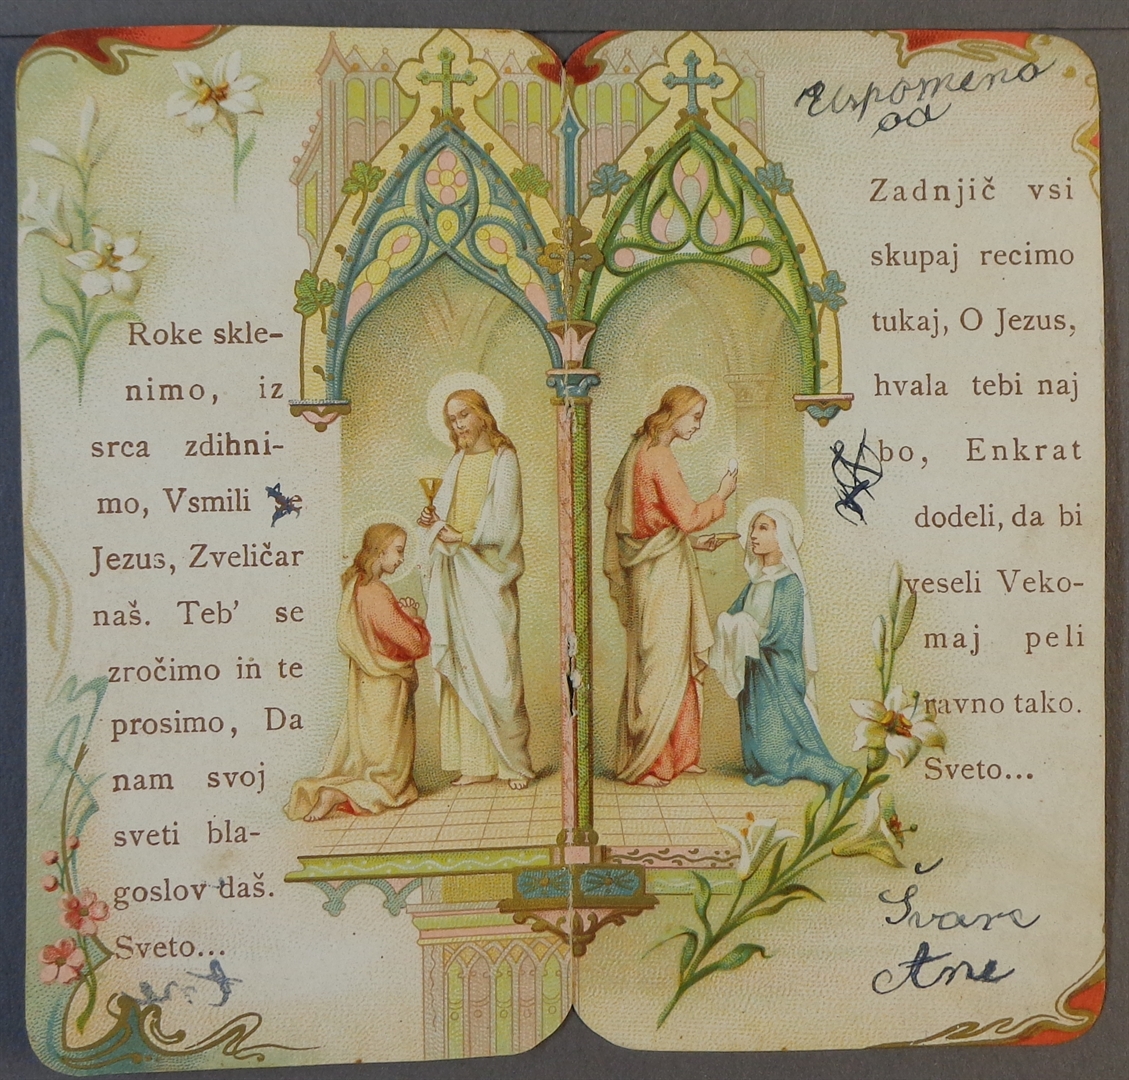 Roke skle-
nimo, iz
srca zdihni-
mo, Vsmili se
Jezus, Zveličar
naš. Teb' se
zročimo in te
prosimo, Da
nam svoj
sveti bla-
goslov daš.
Sveto...
Uspomena
od
Zadnjič vsi
skupaj recimo
tukaj, O Jezus,
hvala tebi naj
bo, Enkrat
dodeli, da bi
veseli Veko-
maj peli
ravno tako.
Sveto...
Švarc
Ane